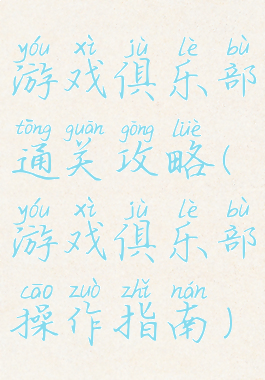 yóu xì jù lè bù
游戏俱乐部
tōng guān gōng lüè
通关攻略(
yóu xì jù lè bù
游戏俱乐部
cāo zuò zhǐ nán
操作指南)